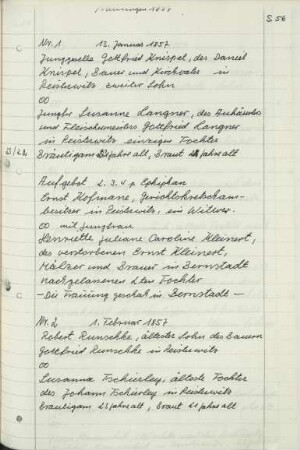 Trauungen 1857
S. 56
Nr. 1 13. Januar 1857
Junggeselle Gottfried Knispel, des Daniel
Knispel, Bauer und Kirchvater in
Reisterwitz zweiter Sohn
∞
Jungfr Susanne Langner, des Auhäuslers
und Fleischermeisters Gottfried Langner
in Reisterwitz einzige Tochter
Bräutigam jahre alt, Braut jahre alt
Aufgebot 2. 3. 4 p. Epiphan
Ernst Hofmann, Gerichtskretscham-
besitzer in Reisterwitz, ein Witwer.
∞ mit Jungfrau
Henriette Juliane Caroline Kleinert,
des verstorbenen Ernst Kleinert,
Mälzer und Brauer in Bernstadt
nachgelassenen Tochter
- Die Trauung geschah in Bernstadt -
Nr. 2 1. Februar 1857
Robert Runschke, ältester Sohn des Bauern
Gottfried Runschke in Reisterwitz
∞
Susanna Tschierley, älteste Tochter
des Johann Tschierley in Reisterwitz
Bräutigam 23 jahre alt, Braut 21 jahre alt